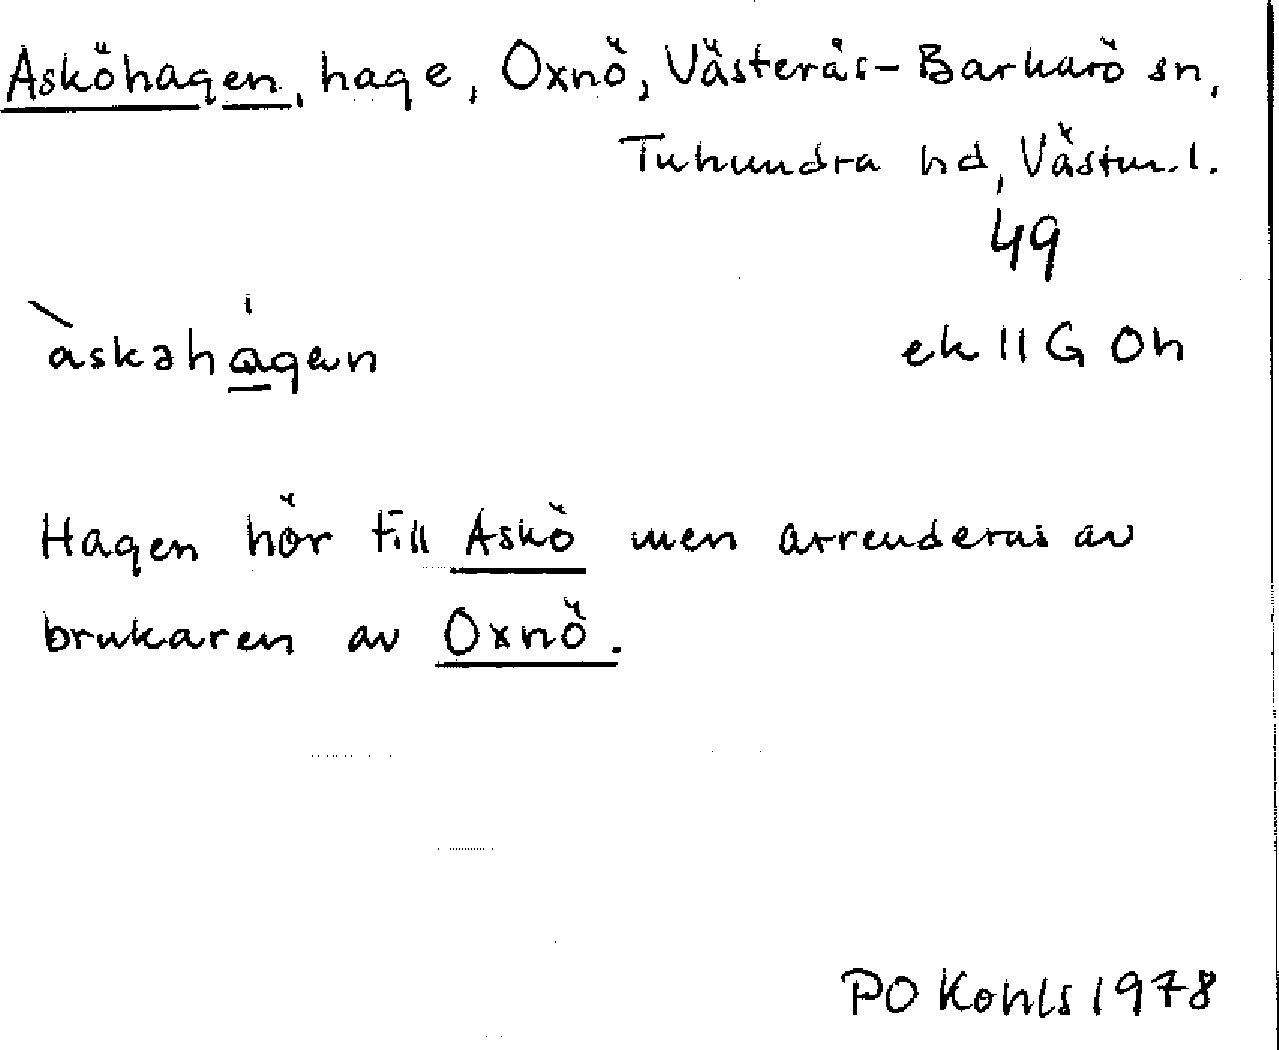 Asköhagen, hage, Oxnö, Västerås-Barkarö sn,
Tuhundra hd, Västm.l.
49
àskəhàgən
ek 11 G 0h
Hagen hör till Askö men arrenderas av
brukaren av Oxnö.
PO Kohls 1978